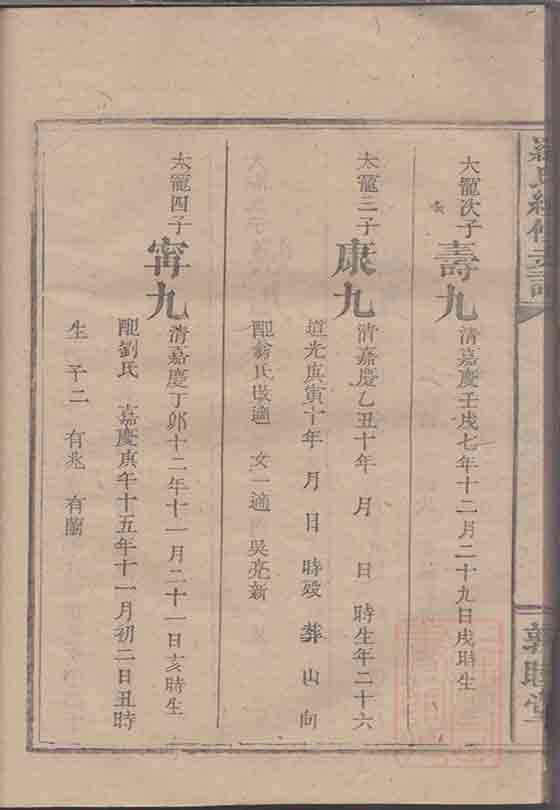 大龍次子 壽九 清嘉慶壬戌七年十二月二十九日戌時生
大龍三子 康九 清嘉慶乙丑十年 月 日 時生年二十六
道光庚寅十年 月 日 時歿 葬 山 向
配翁氏改適 女一適 吳亮新
大龍四子 甯九 清嘉慶丁卯十二年十一月二十一日亥時生
配劉氏 嘉慶庚午十五年十一月初二日丑時
生 子二 有兆 有蘭
敦睦堂